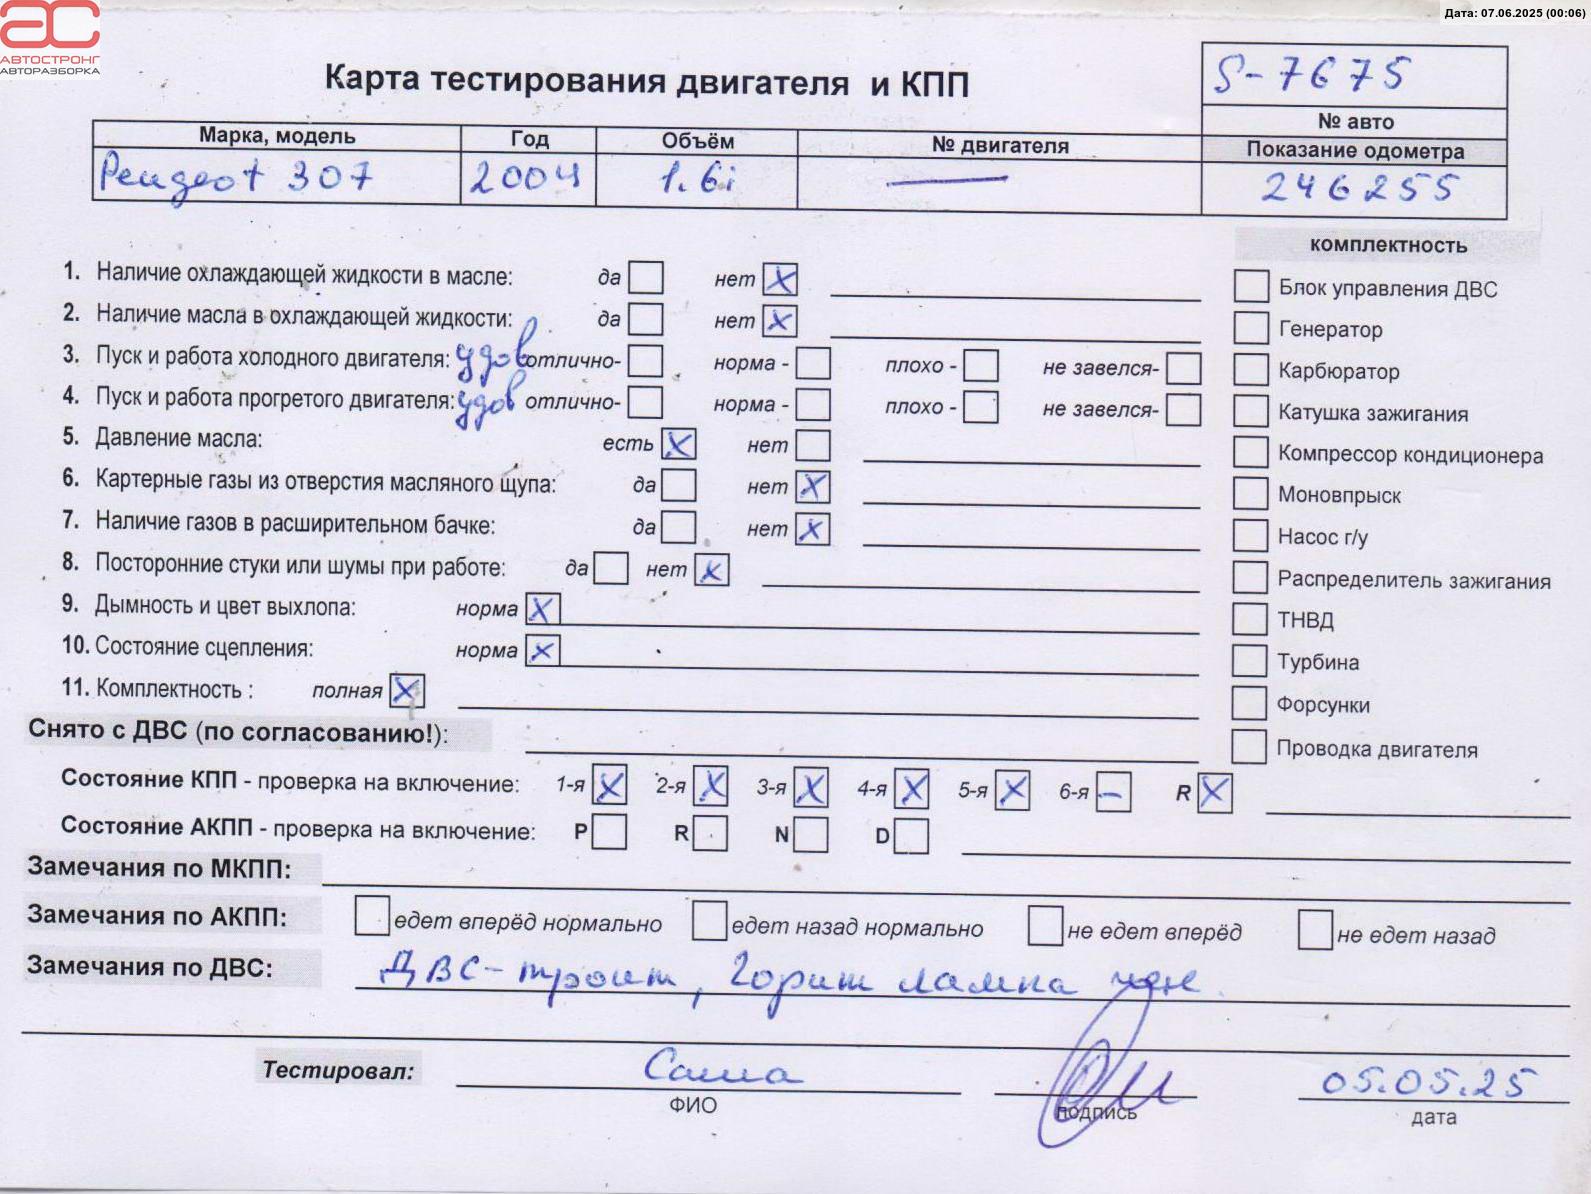 Дата: 07.06.2025 (00:06)
АВТОСТРОНГ
АВТОРАЗБОРКА
Карта тестирования двигателя и КПП
S-7675
№ авто
Марка, модель Год Объём № двигателя Показание одометра
Peugeot 307 2004 1.6i — 246255
комплектность
1. Наличие охлаждающей жидкости в масле: да нет X
2. Наличие масла в охлаждающей жидкости: да нет X
3. Пуск и работа холодного двигателя: удов отлично- норма - плохо - не завелся-
4. Пуск и работа прогретого двигателя: удов отлично- норма - плохо - не завелся-
5. Давление масла: есть X нет
6. Картерные газы из отверстия масляного щупа: да нет X
7. Наличие газов в расширительном бачке: да нет X
8. Посторонние стуки или шумы при работе: да нет X
9. Дымность и цвет выхлопа: норма X
10. Состояние сцепления: норма X
11. Комплектность : полная X
Блок управления ДВС
Генератор
Карбюратор
Катушка зажигания
Компрессор кондиционера
Моновпрыск
Насос г/у
Распределитель зажигания
ТНВД
Турбина
Форсунки
Проводка двигателя
Снято с ДВС (по согласованию!):
Состояние КПП - проверка на включение: 1-я X 2-я X 3-я X 4-я X 5-я X 6-я — R X
Состояние АКПП - проверка на включение: P R N D
Замечания по МКПП:
Замечания по АКПП: едет вперёд нормально едет назад нормально не едет вперёд не едет назад
Замечания по ДВС: ДВС - троит, Горит лампа
Тестировал: Саша 05.05.25
ФИО подпись дата